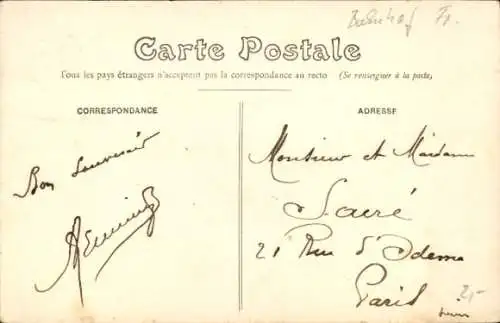 Bahnhof Fr.
Carte Postale
Tous les pays étrangers n'acceptent pas la correspondance au recto (Se renseigner à la poste)
CORRESPONDANCE
ADRESSE
Bon Souvenir
Monsieur et Madame
Sacré
21 Rue d'Odessa
Paris